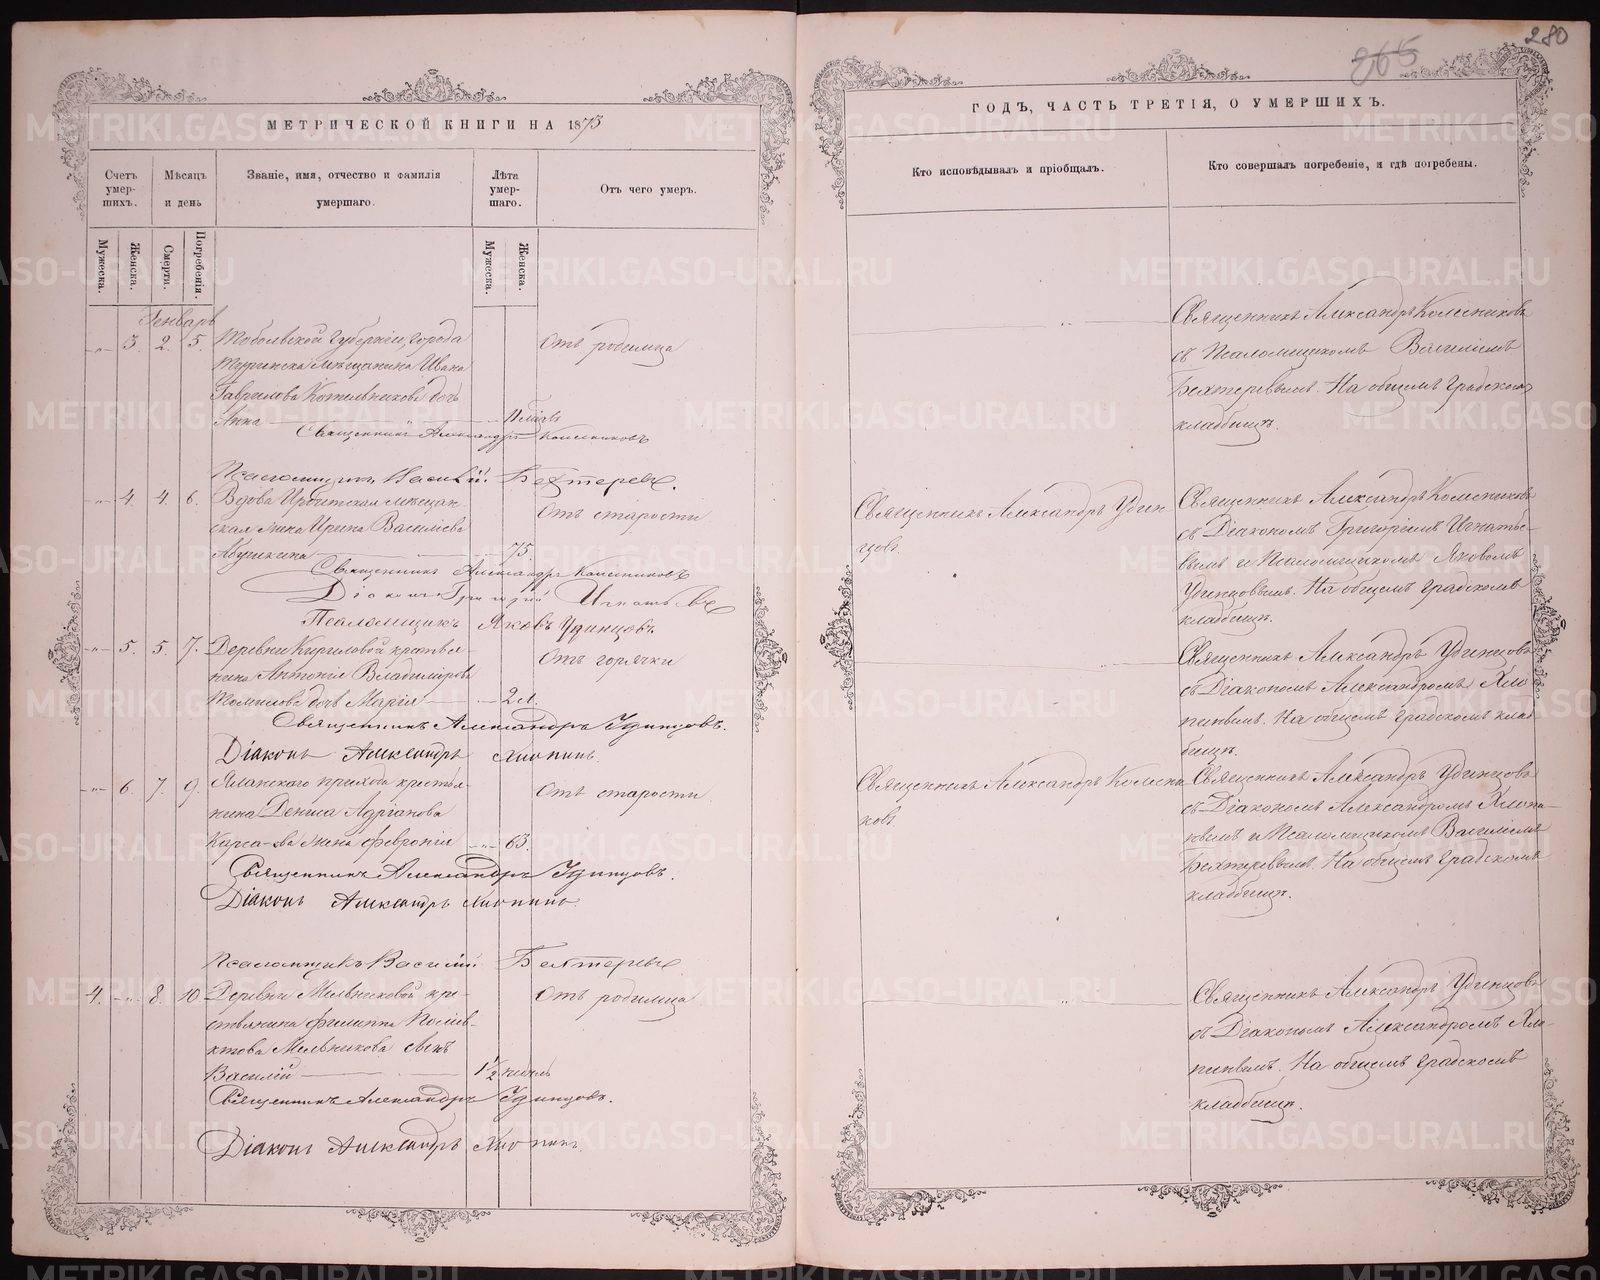 280
265
МЕТРИЧЕСКОЙ КНИГИ НА 1873
ГОДЪ, ЧАСТЬ ТРЕТІЯ, О УМЕРШИХЪ.
Счетъ умер-шихъ.
Мѣсяцъ и день
Званіе, имя, отчество и фамилія умершаго.
Лѣта умер-шаго.
Отъ чего умеръ.
Кто исповѣдывалъ и пріобщалъ.
Кто совершалъ погребеніе, и гдѣ погребены.
Мужеска.
Женска.
Смерти.
Погребенія.
Мужеска.
Женска.
Генварь
-„- 3. 2. 5.
Тобольской губерніи, города
Туринска мѣщанина Ивана
Гаврилова Котельникова дочь
Анна
Отъ родимца
Священникъ Александръ Колесниковъ
съ Псаломщикомъ Василіемъ
Бехтеревымъ. На общемъ градскомъ
кладбищѣ.
Священникъ Александръ Колесниковъ
Псаломщикъ Василій Бехтеревъ.
-„- 4. 4. 6.
Вдова Ирбитская мѣщан
ская жена Ирина Василіева
75.
Отъ старости
Священникъ Александръ Удин
цовъ.
Священникъ Александръ Колесниковъ
съ Діакономъ Григоріемъ Игнатье-
вымъ и Псаломщикомъ Яковомъ
Удинцовымъ. На общемъ градскомъ
кладбищѣ.
Священникъ Александръ Колесниковъ
Діаконъ Григорій Игнатьевъ
Псаломщикъ Яковъ Удинцовъ
-„- 5. 5. 7.
Деревни Кириловой крестья-
нина Антонія Владимірова
Томилова дочь Марія
2 л.
Отъ горячки
Священникъ Александръ Удинцовъ
съ Діакономъ Александромъ Хло
пинымъ. На общемъ градскомъ клад
бищѣ.
Священникъ Александръ Удинцовъ.
Діаконъ Александръ Хлопинъ.
-„- 6. 7. 9.
прихода крестья-
нина Дениса Адріанова
жена Февронія
63.
Отъ старости
Священникъ Александръ Колесни
ковъ
Священникъ Александръ Удинцовъ
съ Діакономъ Александромъ Хлопи-
нымъ и Псаломщикомъ Василіемъ
Бехтеревымъ. На общемъ градскомъ
кладбищѣ.
Священникъ Александръ Удинцовъ.
Діаконъ Александръ Хлопинъ.
Псаломщикъ Василій Бехтеревъ
4. -„- 8. 10.
Деревни Мельниковой кре-
стьянина Филиппа Полiев-
ктова Мельникова сынъ
Василій
1½ недѣль
Отъ родимца
Священникъ Александръ Удинцовъ
съ Діакономъ Александромъ Хло-
пинымъ. На общемъ градскомъ
кладбищѣ.
Священникъ Александръ Удинцовъ.
Діаконъ Александръ Хлопинъ.
METRIKI.GASO-URAL.RU